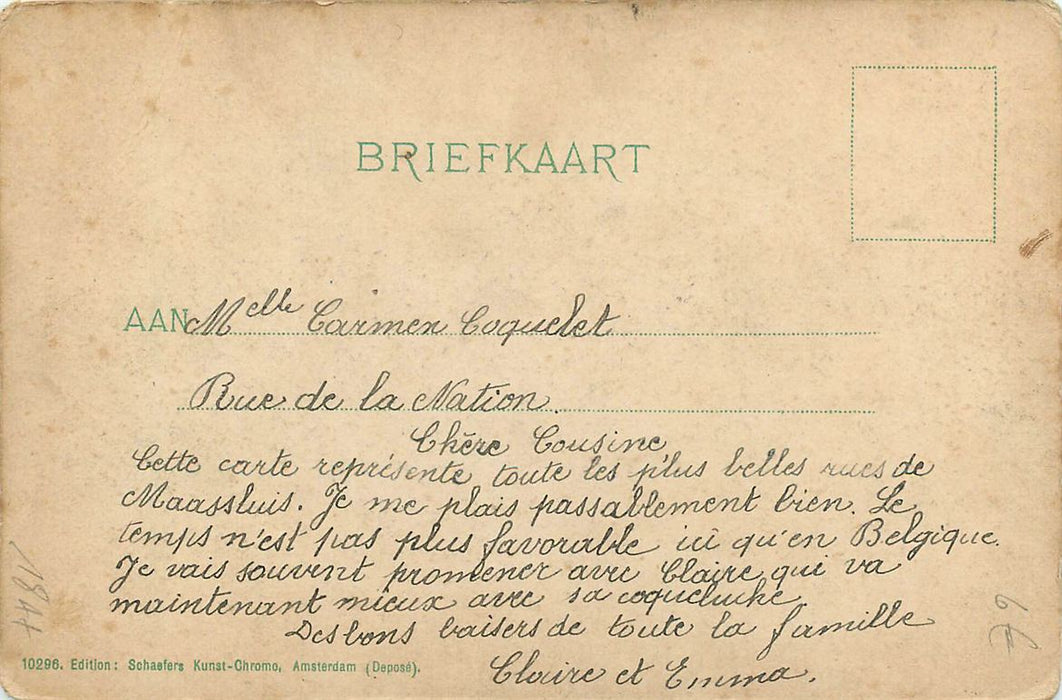 BRIEFKAART
AAN Melle Carmen Coquelet
Rue de la Nation.
Chère Cousine
Cette carte représente toute les plus belles rues de
Maassluis. Je me plais passablement bien. Le
temps n'est pas plus favorable ici qu'en Belgique.
Je vais souvent promener avec Claire qui va
maintenant mieux avec sa coqueluche
Des bons baisers de toute la famille
Claire et Emma.
10296. Edition: Schaefers Kunst-Chromo, Amsterdam (Deposé).